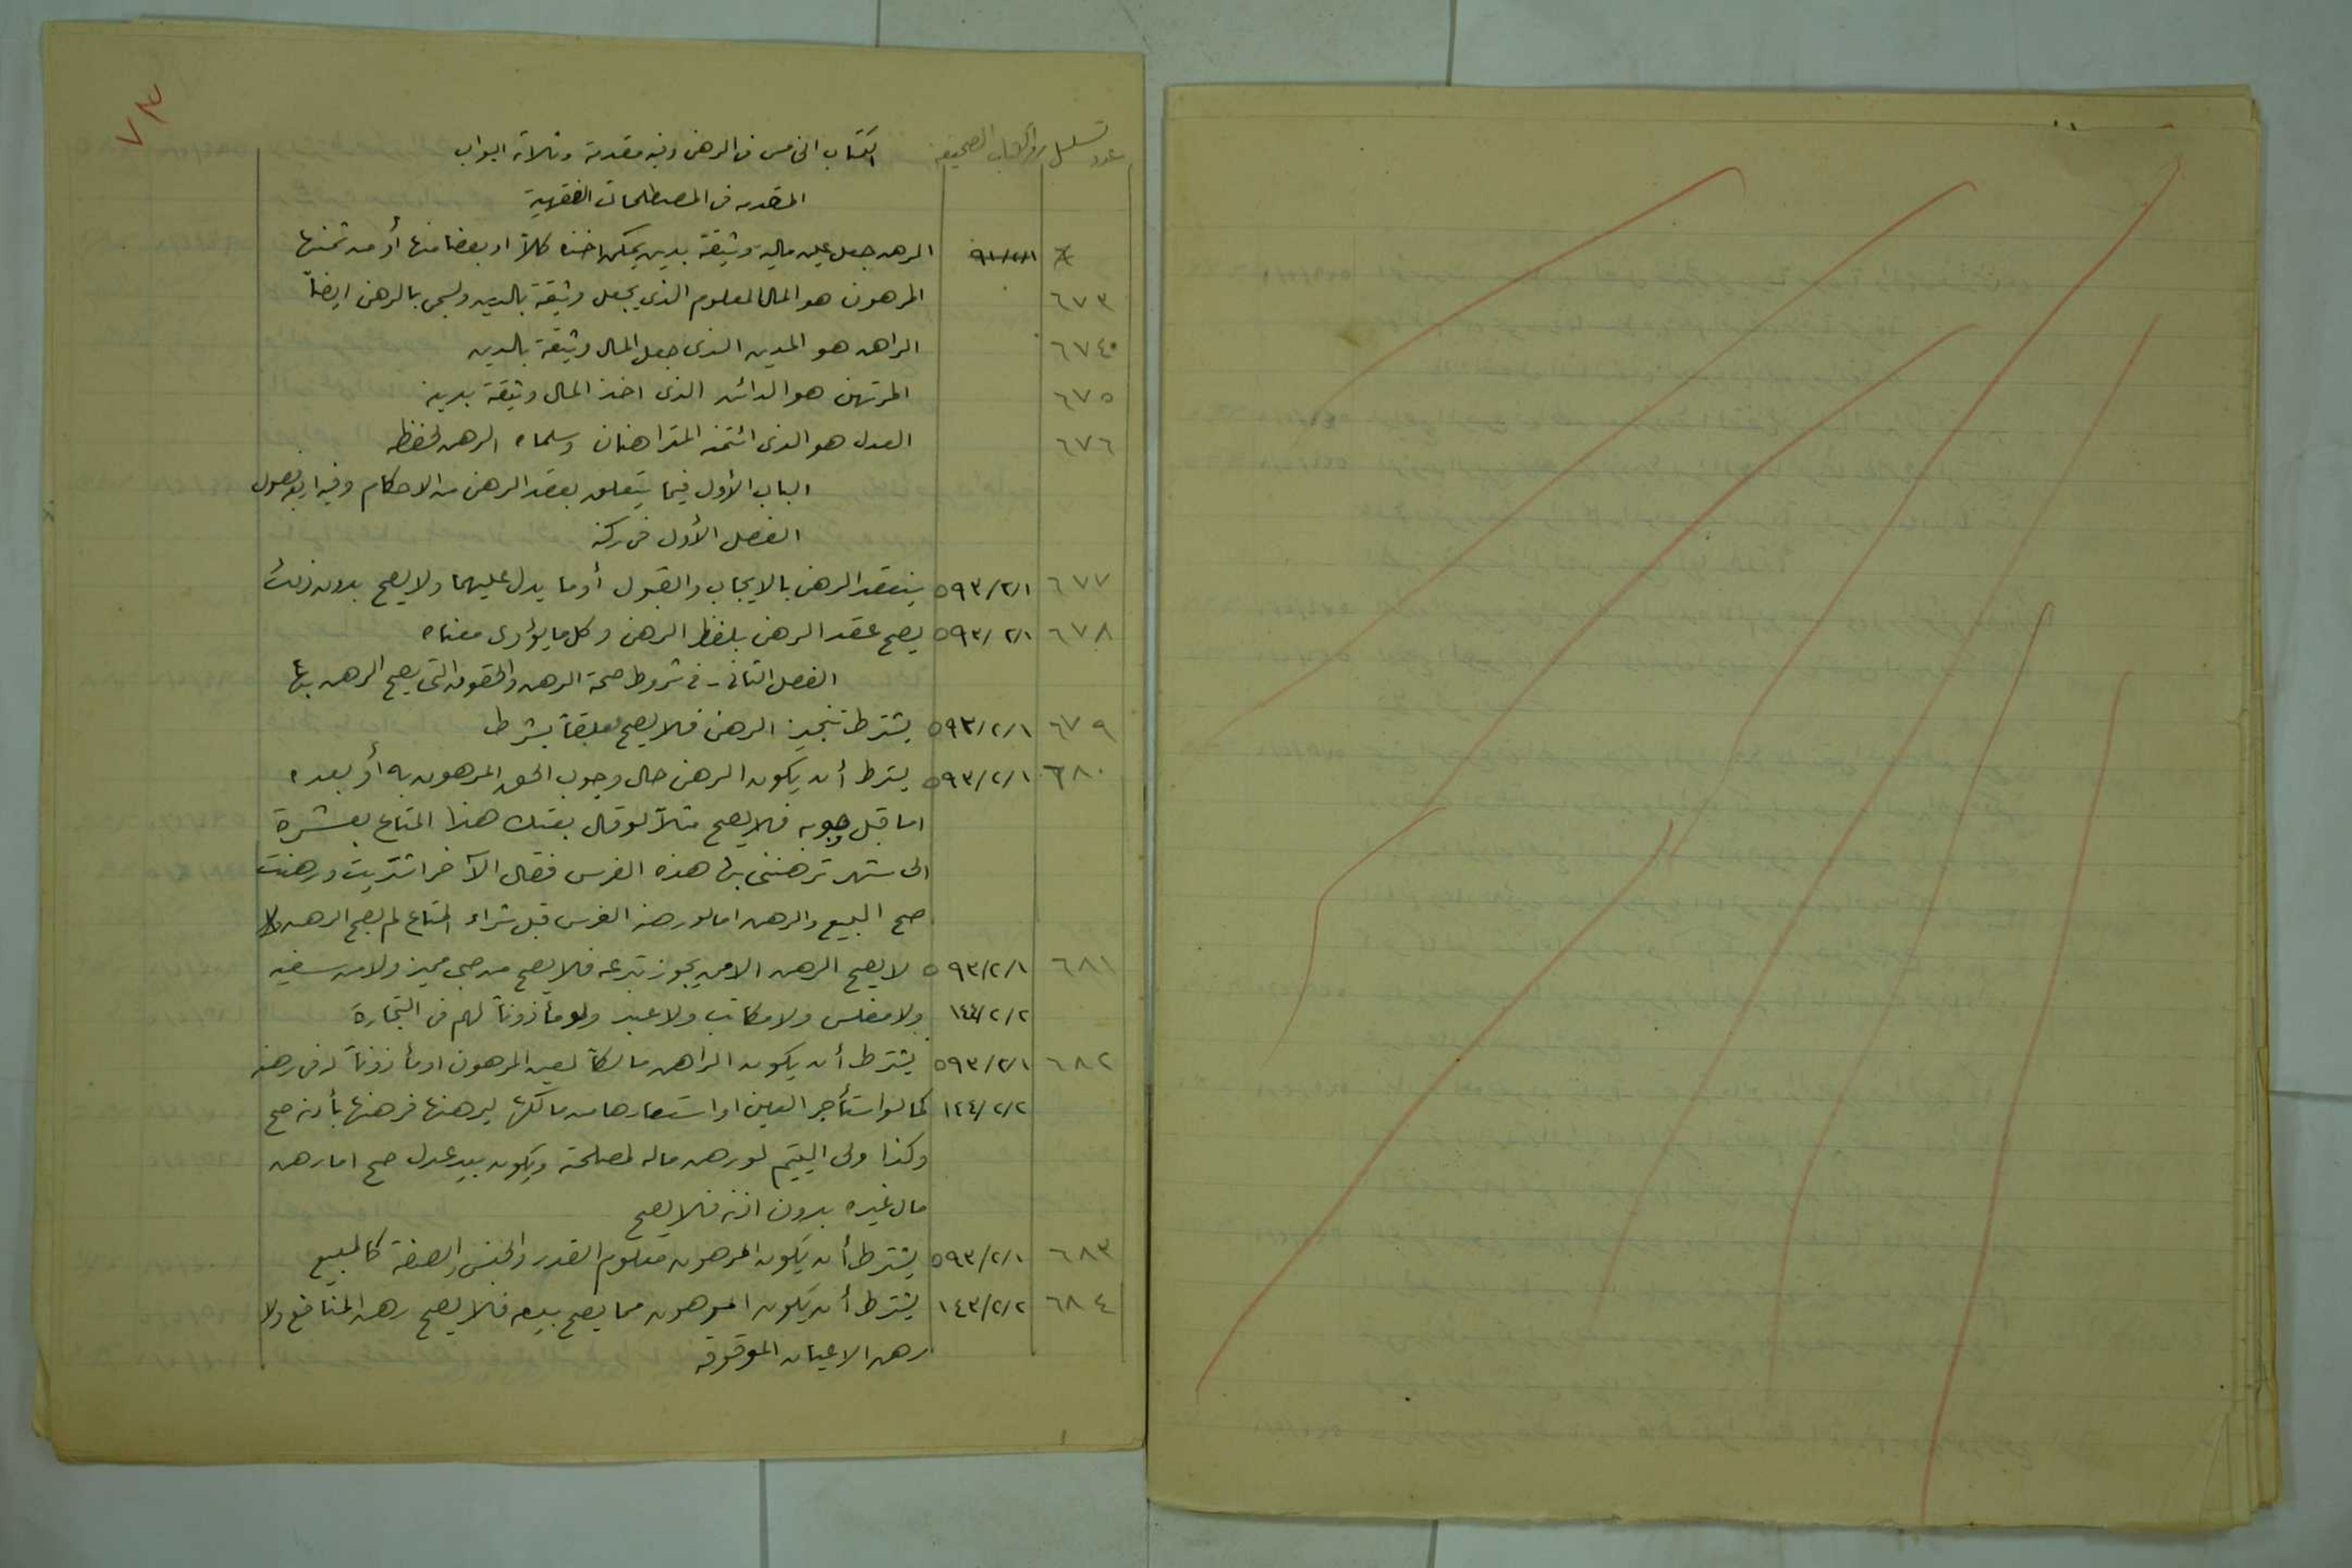 ٧٣
عدد تسلسل رقم الكتاب الصحيفه
الكتاب الخامس في الرهن وفيه مقدمة وثلاثة ابواب
المقدمه في المصطلحات الفقهية
الرهن جعل عين ماليه وثيقة بدين يمكن اخذه كلاً او بعضا منها أو من ثمنها
٦٧٣ المرهون هو المال المعلوم الذي يجعل وثيقة بالدين ويسمى بالرهن ايضاً
٦٧٤ الراهن هو المدين الذي جعل المال وثيقة بالدين
٦٧٥ المرتهن هو الدائن الذي اخذ المال وثيقة بدينه
٦٧٦ العدل هو الذي ائتمنه المتراهنان وسلماه الرهن لحفظه
الباب الأول فيما يتعلق بعقد الرهن من الاحكام وفيه اربعة فصول
الفصل الأول في ركنه
٦٧٧ ٥٩٣/٢/١ ينعقد الرهن بالايجاب والقبول أو ما يدل عليهما ولا يصح بدون ذلك
٦٧٨ ٥٩٣/٢/١ يصح عقد الرهن بلفظ الرهن وكل ما يؤدى معناه
الفصل الثاني - في شروط صحة الرهن والحقوق التي يصح الرهن بها
٦٧٩ ٥٩٣/٢/١ يشترط تنجيز الرهن فلا يصح معلقاً بشرط
٦٨٠ ٥٩٣/٢/١ يشترط أن يكون الرهن حال وجوب الحق المرهون به أو بعده
اما قبل وجوبه فلا يصح مثلاً لو قال بعتك هذا المتاع بعشرة
الى شهر ترهنني بها هذه الفرس فقال الآخر اشتريت ورهنت
صح البيع والرهن اما لو رهنه الفرس قبل شراء المتاع لم يصح الرهن
٦٨١ ٥٩٣/٢/١ لا يصح الرهن الا ممن يجوز تبرعه فلا يصح من صبي مميز ولا من سفيه
١٤٤/٢/٢ ولا مفلس ولا مكاتب ولا عبد ولو مأذوناً لهم في التجارة
٦٨٢ ٥٩٣/٢/١ يشترط أن يكون الراهن مالكاً لعين المرهون او مأذوناً له في رهنه
١٤٤/٢/٢ كما لو استأجر العين او استعارها من مالكها ليرهنها فرهنها بأذنه صح
وكذا ولى اليتيم لو رهن ماله لمصلحته ويكون بيد عدل صح اما رهن
مال غيره بدون اذنه فلا يصح
٦٨٣ ٥٩٣/٢/١ يشترط أن يكون المرهون معلوم القدر والجنس والصفة كالمبيع
٦٨٤ ١٤٣/٢/٢ يشترط أن يكون المرهون مما يصح بيعه فلا يصح رهن المنافع ولا
رهن الاعيان الموقوفه